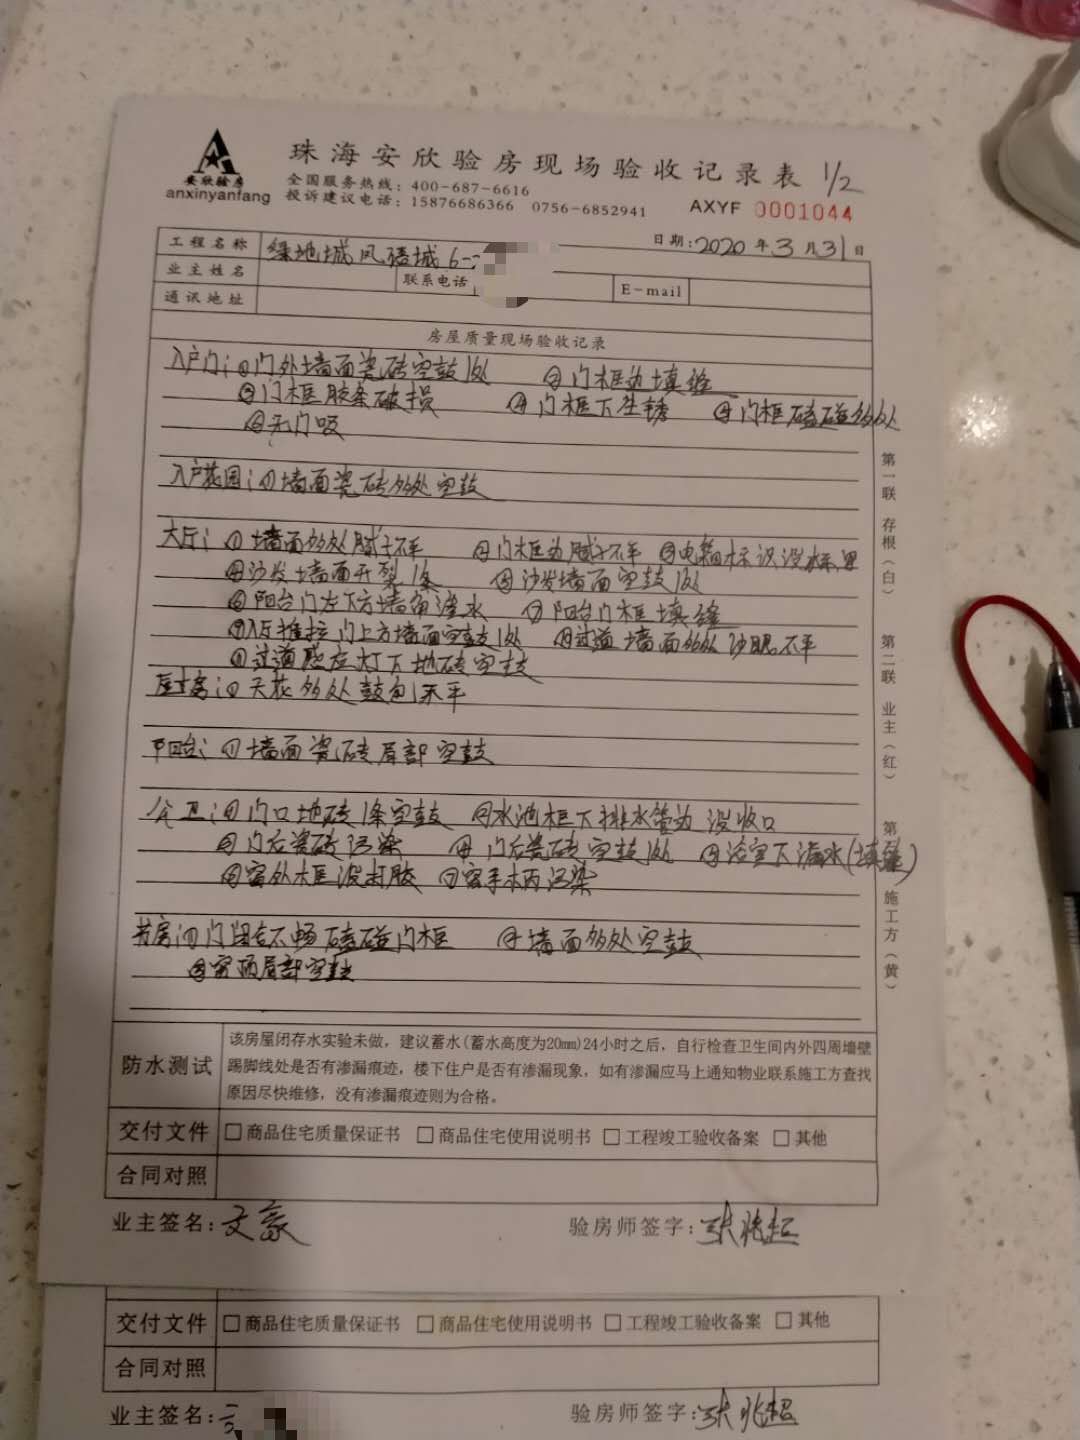 安欣验房
anxinyanfang
珠海安欣验房现场验收记录表 1/2
全国服务热线：400-687-6616
投诉建议电话：15876686366 0756-6852941 AXYF 0001044
日期：2020年3月31日
工程名称 绿地城风 城6-
业主姓名 联系电话 E-mail
通讯地址
房屋质量现场验收记录
入户门：①门外墙面瓷砖空鼓1处 ②门框边填缝
③门框胶条破损 ④门框下生锈 ⑤门框磕碰多处
⑥无门吸
入户花园：①墙面瓷砖多处空鼓
大厅：①墙面多处腻子不平 ②门框边腻子不平 ③电箱标识没标
④沙发墙面开裂1条 ⑤沙发墙面空鼓1处
⑥阳台门左下方墙角渗水 ⑦阳台门框填缝
⑧入厅推拉门上方墙面空鼓1处 ⑨过道墙面多处沙眼不平
⑩过道感应灯下地砖空鼓
厨房：①天花多处鼓包不平
阳台：①墙面瓷砖局部空鼓
公卫：①门口地砖1条空鼓 ②水池柜下排水管边没收口
③门后瓷砖污染 ④门后瓷砖空鼓1处 ⑤浴室下漏水(填缝)
⑥窗外框没打胶 ⑦窗手柄污染
书房：①门闭合不畅磕碰门框 ②墙面多处空鼓
③窗 局部空鼓
第一联 存根（白） 第二联 业主（红） 第 施工方（黄）
防水测试 该房屋闭存水实验未做，建议蓄水(蓄水高度为20mm)24小时之后，自行检查卫生间内外四周墙壁
踢脚线处是否有渗漏痕迹，楼下住户是否有渗漏现象，如有渗漏应马上通知物业联系施工方查找
原因尽快维修，没有渗漏痕迹则为合格。
交付文件 □商品住宅质量保证书 □商品住宅使用说明书 □工程竣工验收备案 □其他
合同对照
业主签名：文豪 验房师签字：张兆超
交付文件 □商品住宅质量保证书 □商品住宅使用说明书 □工程竣工验收备案 □其他
合同对照
业主签名： 验房师签字：张兆超